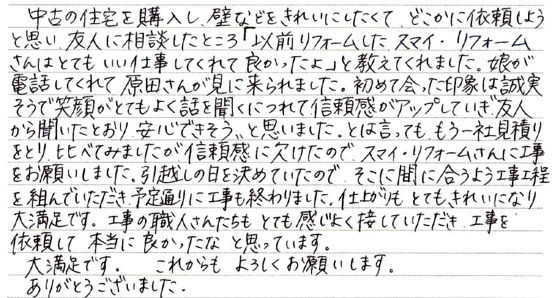 中古の住宅を購入し、壁などをきれいにしたくて、どこかに依頼しよう
と思い、友人に相談したところ「以前リフォームした、スマイ・リフォーム
さんはとてもいい仕事してくれて良かったよ」と教えてくれました。娘が
電話してくれて原田さんが見に来られました。初めて会った印象は誠実
そうで笑顔がとてもよく話を聞くにつれて信頼感がアップしていき、友人
から聞いたとおり、"安心できそう"と思いました。とは言っても、もう一社見積り
をとり、比べてみましたが信頼感に欠けたので、スマイ・リフォームさんに工事
をお願いしました。引越しの日を決めていたので、そこに間に合うよう工事工程
を組んでいただき、予定通りに工事も終わりました。仕上がりも、とてもきれいになり
大満足です。工事の職人さんたちも、とても感じよく接していただき、工事を
依頼して、本当に良かったな、と思っています。
大満足です。 これからも よろしくお願いします。
ありがとうございました。